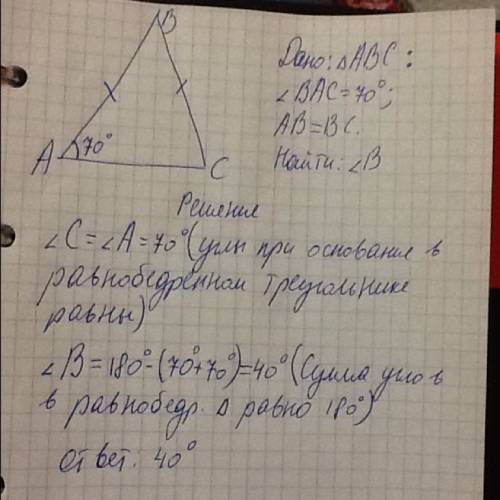 B
A 70° C
Дано: △ABC:
∠BAC=70°;
AB=BC.
Найти: ∠B
Решение
∠C=∠A=70° (углы при основание в
равнобедренном треугольнике
равны)
∠B=180°-(70°+70°)=40° (Сумма углов
в равнобедр. △ равно 180°)
ответ. 40°